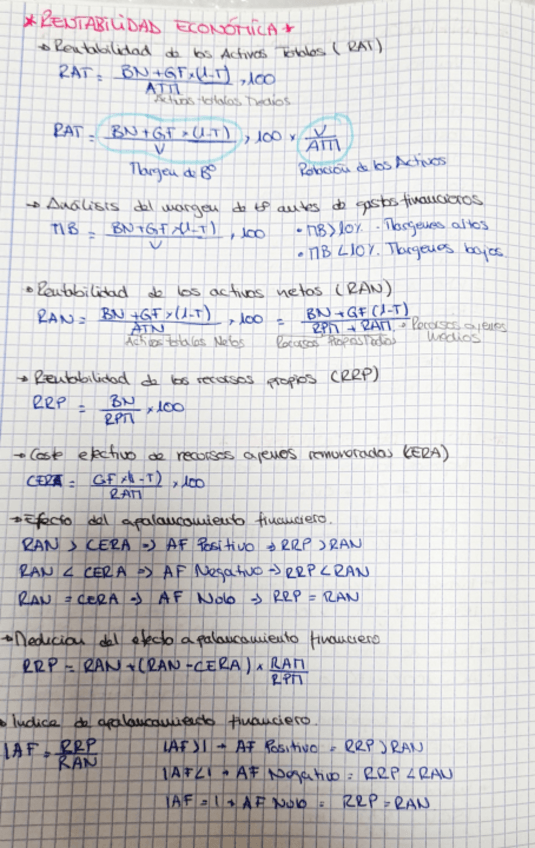 * RENTABILIDAD ECONÓMICA *
→ Rentabilidad de los Activos Totales (RAT)
RAT = BN + GF × (1-T) / ATM × 100
Activos totales Medios
RAT = BN + GF × (1-T) / V × 100 × V / ATM
Margen de Bº Rotación de los Activos
→ Análisis del margen de Bº antes de gastos financieros
MB = BN + GF × (1-T) / V × 100 • MB > 10% . Margenes altos
• MB < 10% . Margenes bajos
• Rentabilidad de los activos netos (RAN)
RAN = BN + GF × (1-T) / ATN × 100 = BN + GF (1-T) / RPM + RAM → Recursos ajenos Medios
Activos totales Netos Recursos Propios Medios
→ Rentabilidad de los recursos propios (RRP)
RRP = BN / RPM × 100
→ Coste efectivo de recursos ajenos remunerados (CERA)
CERA = GF × (1-T) / RAM × 100
→ Efecto del apalancamiento financiero.
RAN > CERA => AF Positivo → RRP > RAN
RAN < CERA => AF Negativo → RRP < RAN
RAN = CERA => AF Nulo → RRP = RAN
→ Medicion del efecto apalancamiento financiero
RRP = RAN + (RAN - CERA) × RAM / RPM
• Indice de apalancamiento financiero.
IAF = RRP / RAN IAF > 1 → AF Positivo = RRP > RAN
IAF < 1 → AF Negativo = RRP < RAN
IAF = 1 → AF Nulo = RRP = RAN